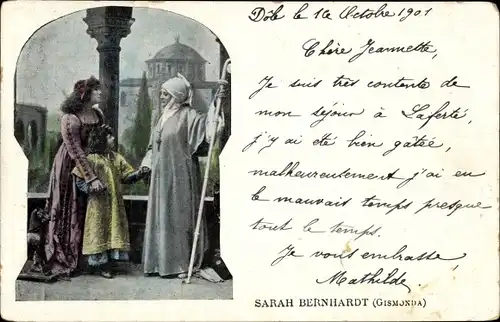 Dôle le 16 Octobre 1901
Chère Jeannette,
Je suis très contente de
mon séjour à Laferté,
j'y ai été bien gâtée,
malheureusement j'ai eu
le mauvais temps presque
tout le temps.
Je vous embrasse,
Mathilde
SARAH BERNHARDT (GISMONDA)